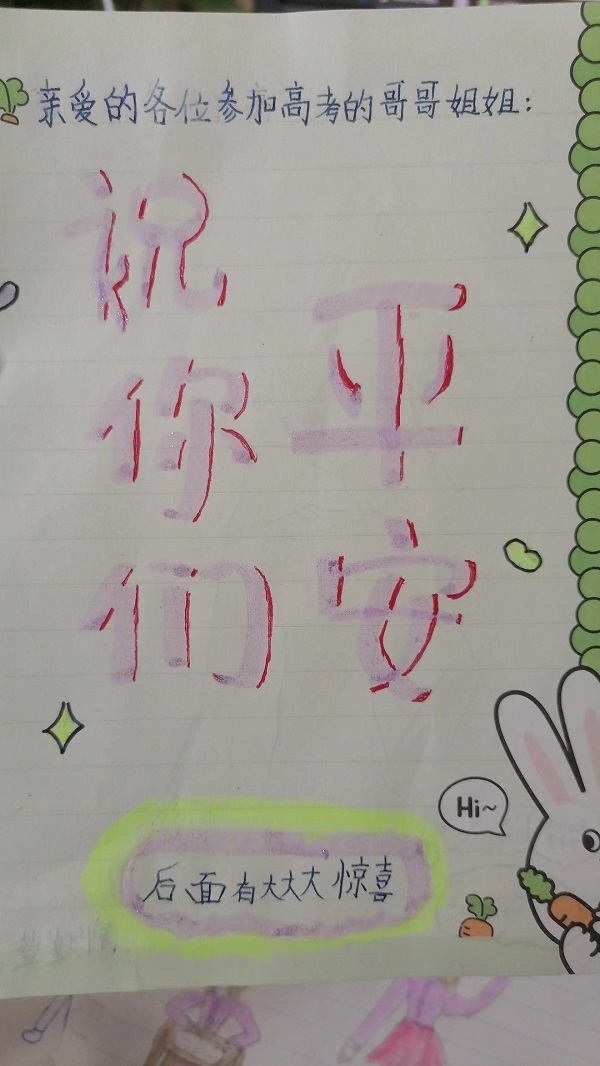 亲爱的各位参加高考的哥哥姐姐：
祝你们
平安
Hi~
后面有大大大惊喜